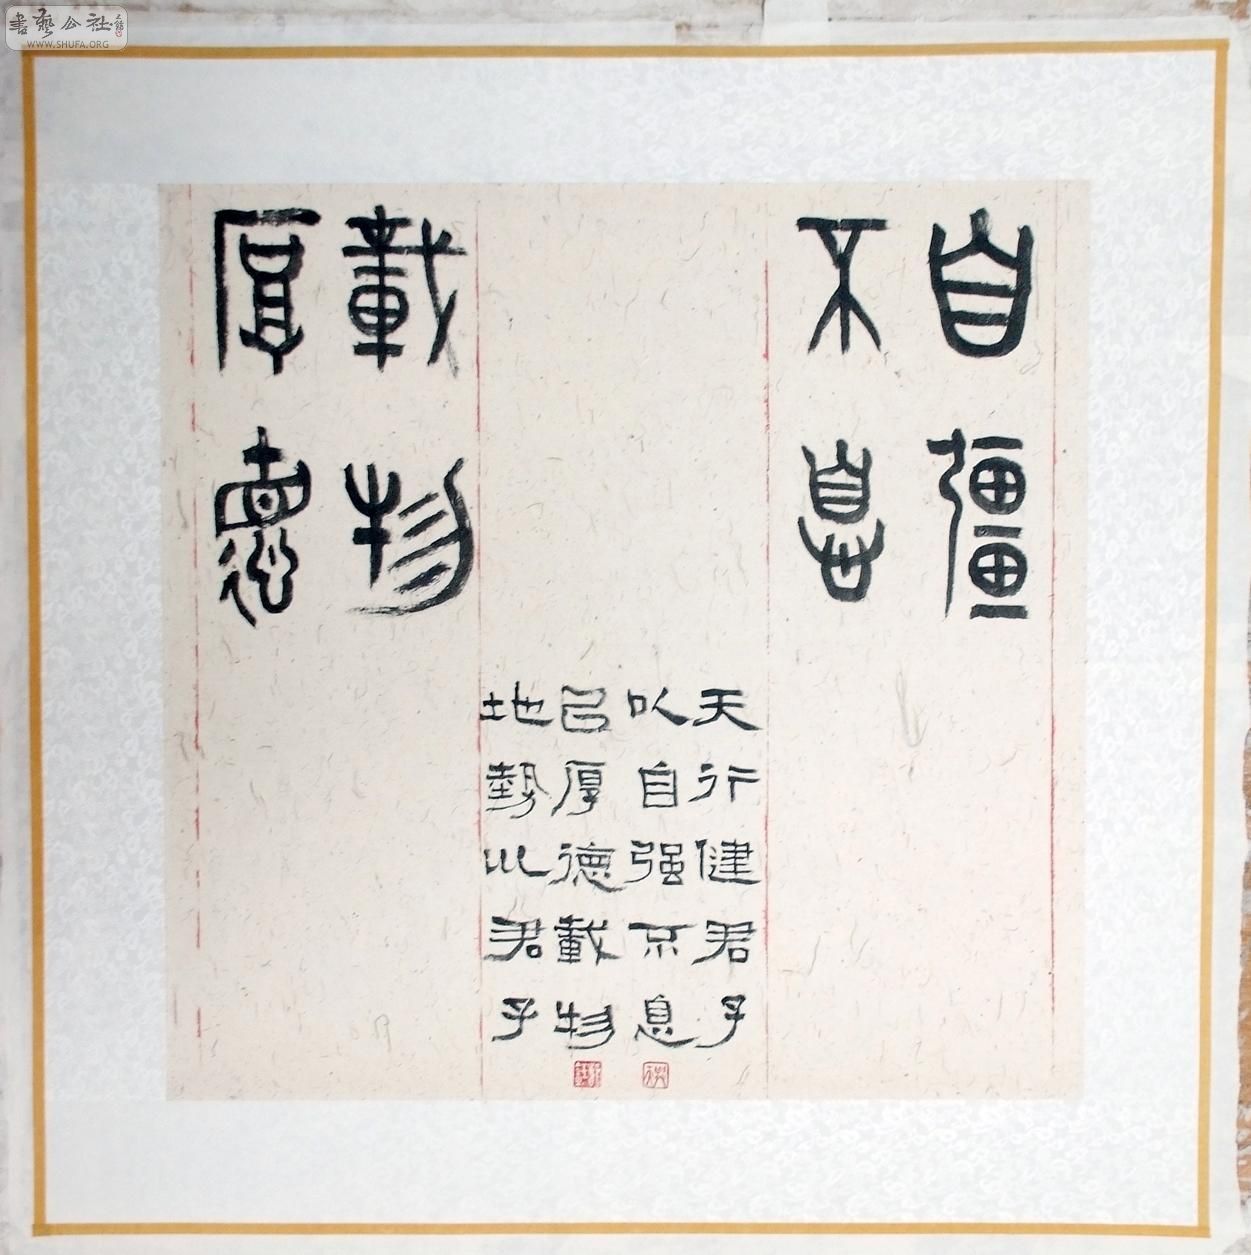 書藝公社
WWW.SHUFA.ORG
自彊
不息
厚德
載物
天行健君子
以自强不息
地勢巛君子
㠯厚德載物